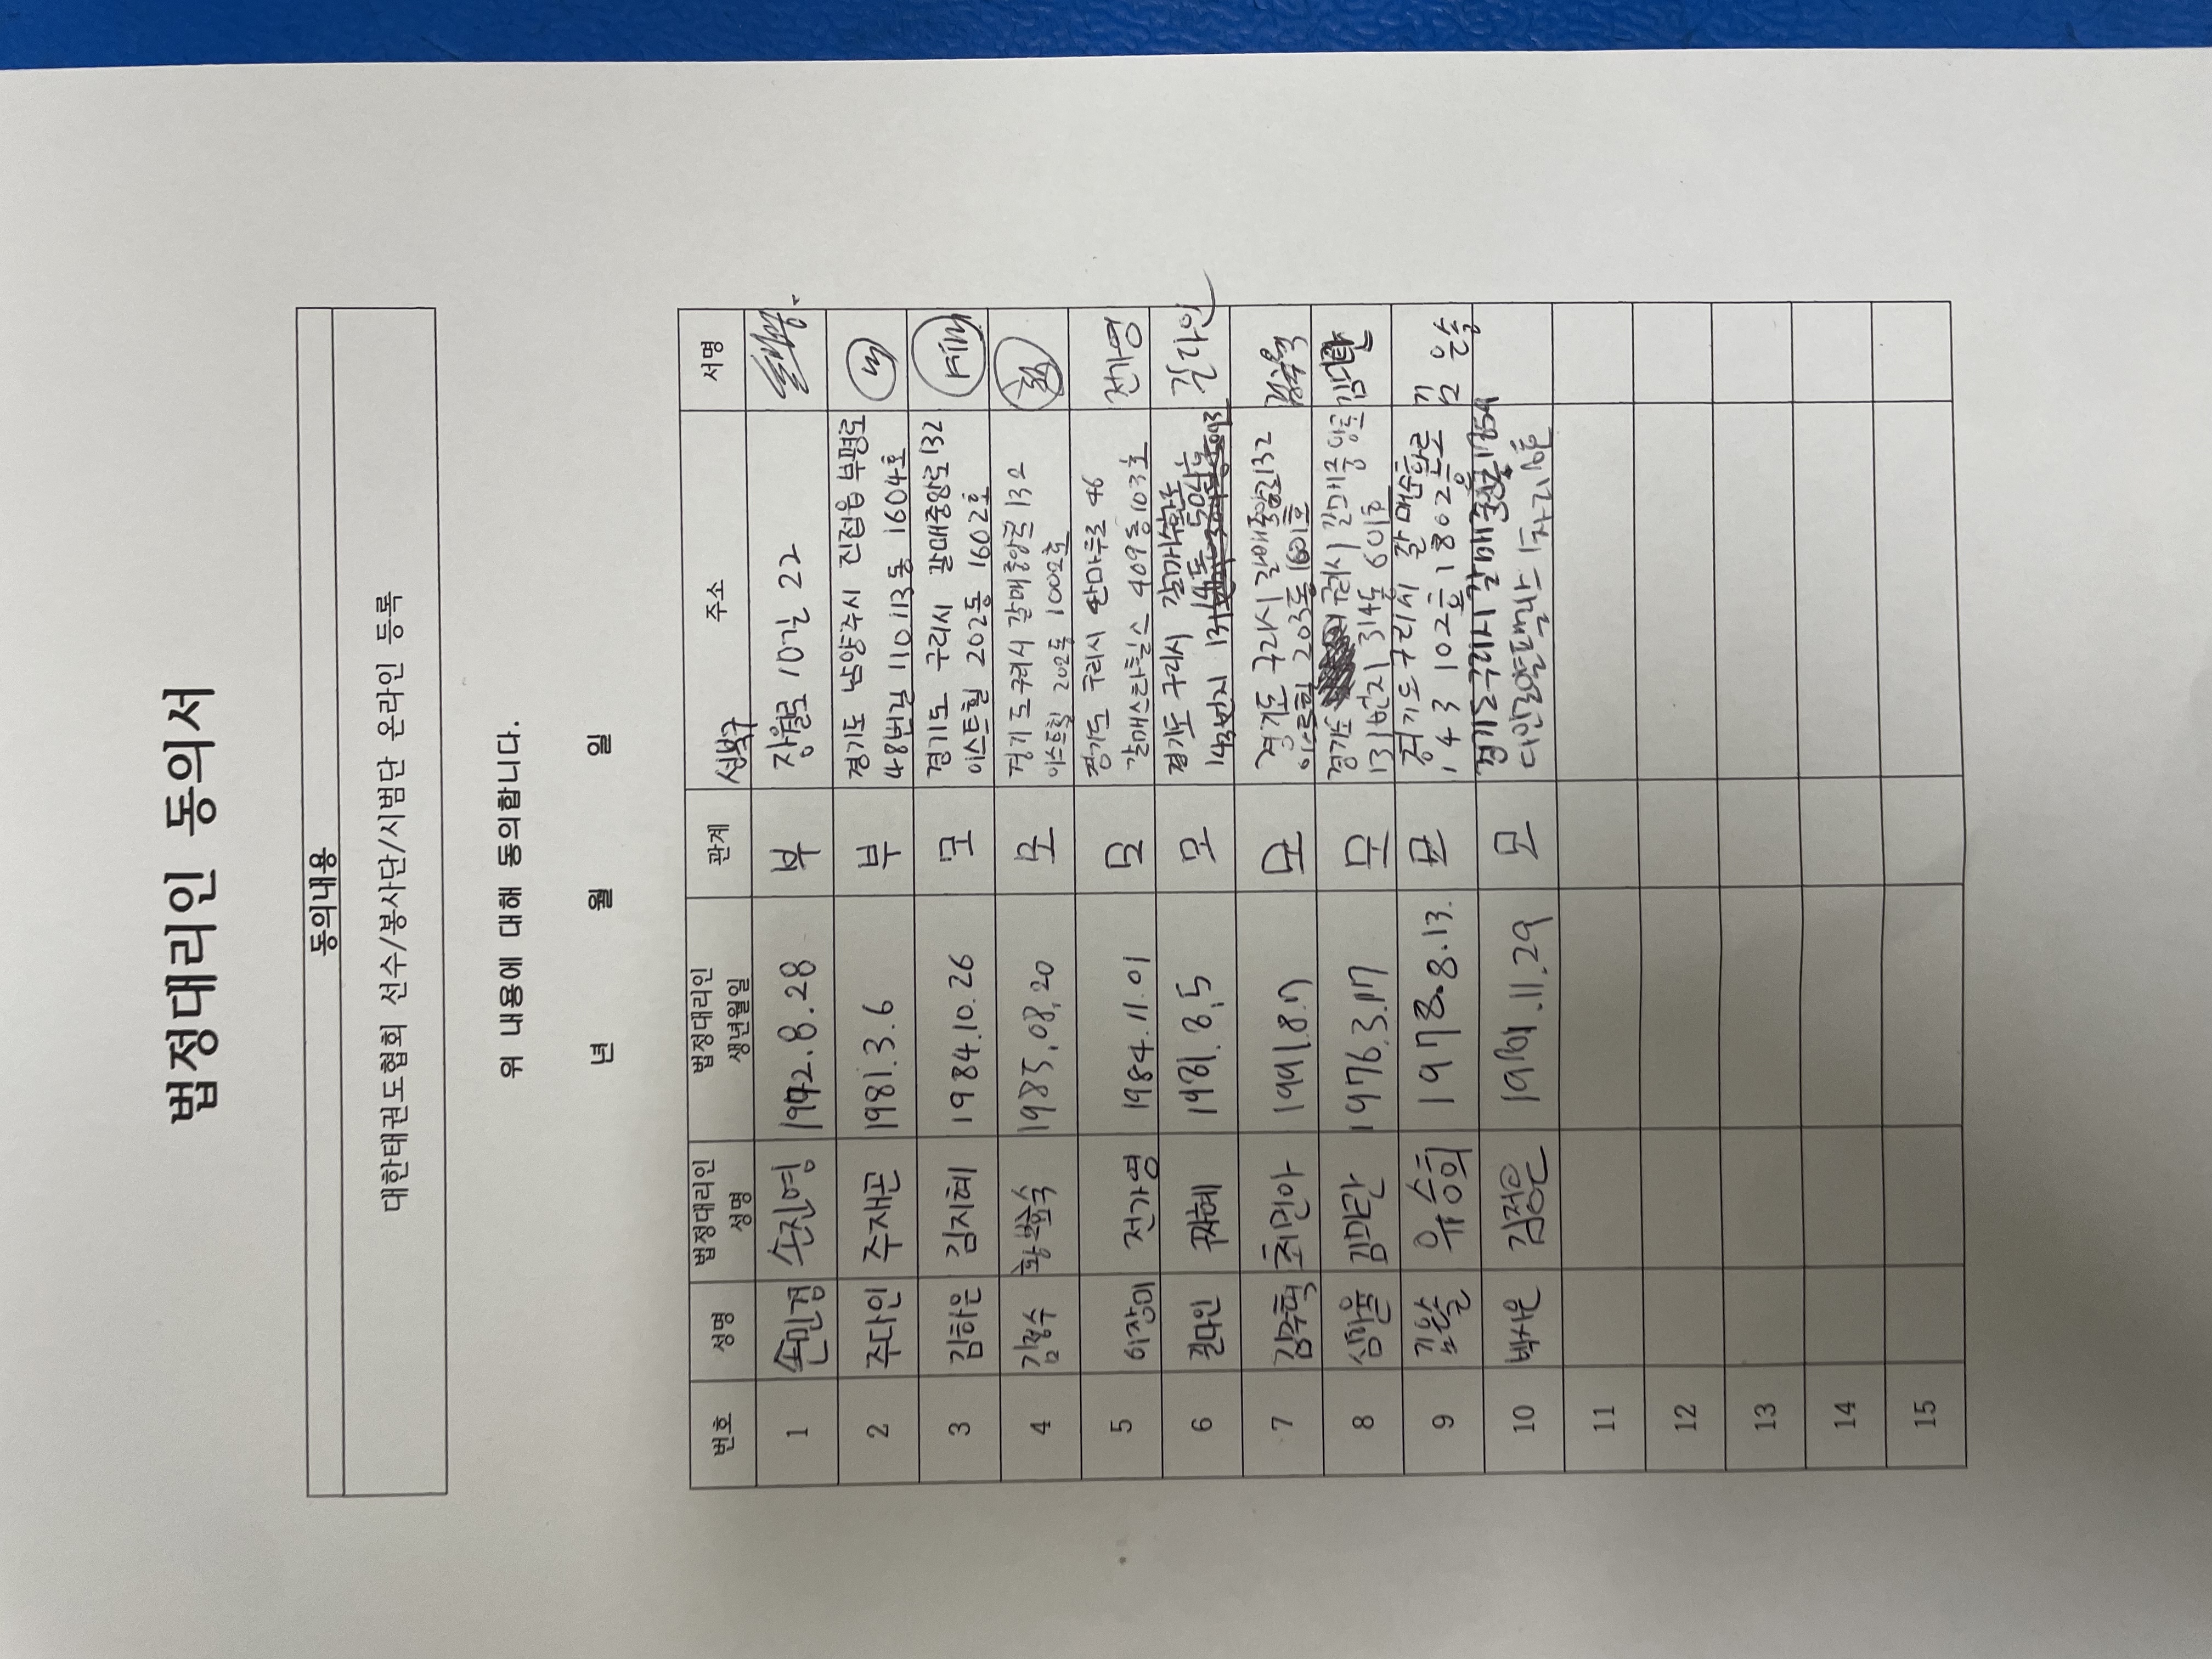 법정대리인 동의서
동의내용
대한태권도협회 선수/봉사단/시범단 온라인 등록
위 내용에 대해 동의합니다.
년 월 일
번호 성명 법정대리인 성명 법정대리인 생년월일 관계 주소 서명
1 손민겸 손진영 부 성북구 장월로 10길 22
2 주다인 주재곤 1981.3.6 부 경기도 남양주시 진접읍 부평로
48번길 110 113동 1604호
3 김하은 김지혜 1984.10.26 모 경기도 구리시 갈매중앙로 132
이스트힐 202동 1602호
4 1985.08.20 모 경기도 구리시 갈매중앙로 132
이스트힐 202동 1002호
5 이장미 전가영 1984.11.01 모 경기도 구리시 46
갈매스타힐스 409동 103호 전가영
6 길다인 1981.8.5 모 경기도 구리시 갈매순환로 길다인
7 김주혁 최민아 1991.8.7 모 경기도 구리시 갈매중앙로 132
이스트힐 203동 1601호
8 심하율 1976.3.17 모 경기도 구리시 갈매중앙로
131번지 314동 601호
9 김은솔 유승희 1978.8.13. 모 경기도 구리시 갈매순환로
143 102호 1802호 김은솔
10 박시온 김정은 모 경기도 구리시
11
12
13
14
15